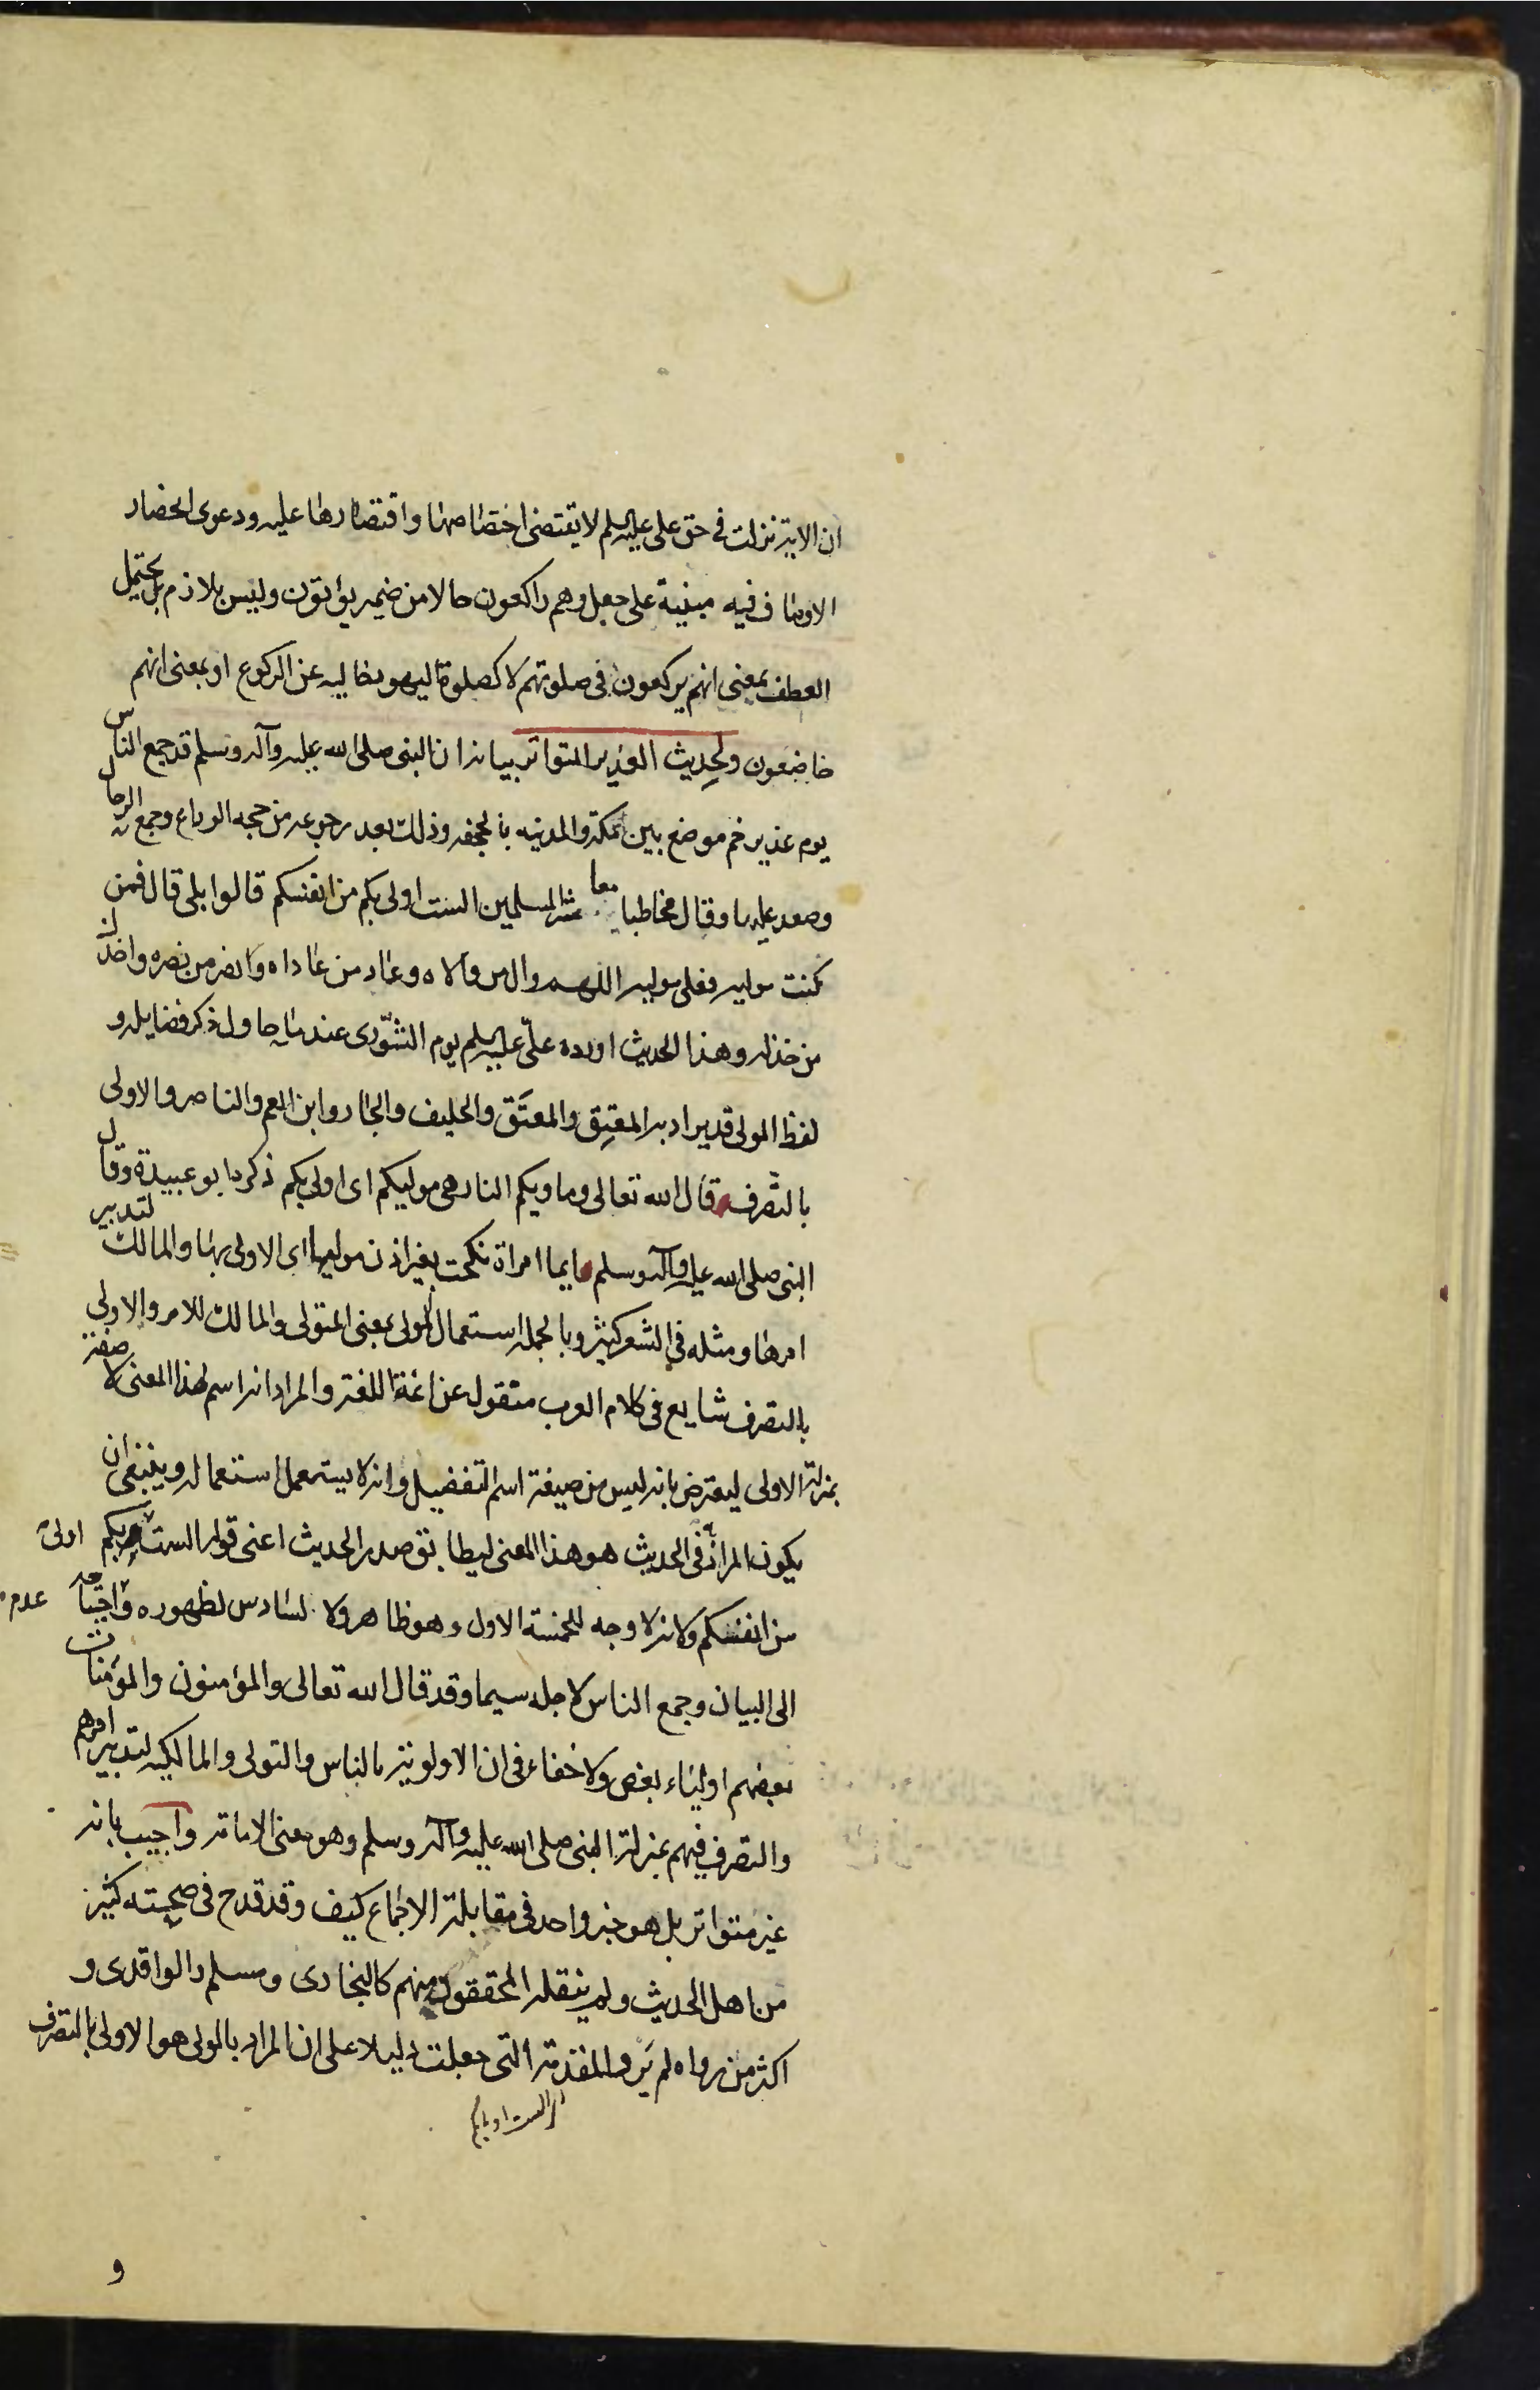 ان الاية نزلت فى حق على عليه السلم لا يقتضى اختصاصها واقتصارها عليه ودعوى الحضار
الاوصاف فيه مبنية على جعل وهم راكعون حالا من ضمير يؤتون وليس بلازم بل يحتمل
العطف بمعنى انهم يركعون فى صلوتهم لا كصلوة اليهود خاليه عن الركوع او بمعنى انهم
خاضعون ولحديث الغدير المتواتر بيانه ان النبى صلى الله عليه وآله وسلم قد جمع الناس
يوم غدير خم موضع بين مكة والمدينه بالجحفه وذلك بعد رجوعه من حجه الوداع وجمع الرحال
وصعد عليها وقال مخاطبا معاشر المسلمين الست اولى بكم من انفسكم قالوا بلى قال فمن
كنت موليه فعلى موليه اللهم وال من والاه وعاد من عاداه وانصر من نصره واخذل
من خذله وهذا الحديث اورده علىّ عليه السلم يوم الشّورى عند ما حاول ذكر فضايله و
لفظ المولى قد يراد به المعتِق والمعتَق والحليف والجار وابن العم والناصر والاولى
بالتصرف قال الله تعالى وماويكم النار هى موليكم اى اولى بكم ذكره ابو عبيدة وقال
النبى صلى الله عليه وآله وسلم ايما امراة نكحت بغير اذن موليها اى الاولى بها والمالك لتدبير
امرها ومثله فى الشعر كثير وبالجمله استعمال المولى بمعنى المتولى والمالك للامر والاولى
بالتصرف شايع فى كلام العرب منقول عن ائمة اللغة والمراد انه اسم لهذا المعنى لا صفة
بمنزلة الاولى ليعترض بانه ليس من صيغة اسم التفضيل وانه لا يستعمل استعماله وينبغى ان
يكون المراد فى الحديث هو هذا المعنى ليطابق صدر الحديث اعنى قوله الست بكم اولى
من انفسكم ولانه لا وجه للخمسة الاول وهو ظاهر ولا لسادس لظهوره و احتياجه عدم
الى البيان وجمع الناس لاجله سيما وقد قال الله تعالى والمؤمنون والمؤمنات
بعضهم اولياء بعض ولا خفاء فى ان الاولوية بالناس والتولى والمالكيه لتدبير امرهم
والتصرف فيهم بمنزلة النبى صلى الله عليه وآله وسلم وهو معنى الامامة واجيب بانه
غير متواتر بل هو خبر واحد فى مقابلة الاجماع كيف وقد قدح فى صحته كثير
من اهل الحديث ولم ينقله المحققون منهم كالبخارى ومسلم والواقدى و
اكثر من رواه لم يرو المقدمة التى جعلت دليلا على ان المراد بالمولى هو الاولى بالتصرف
و